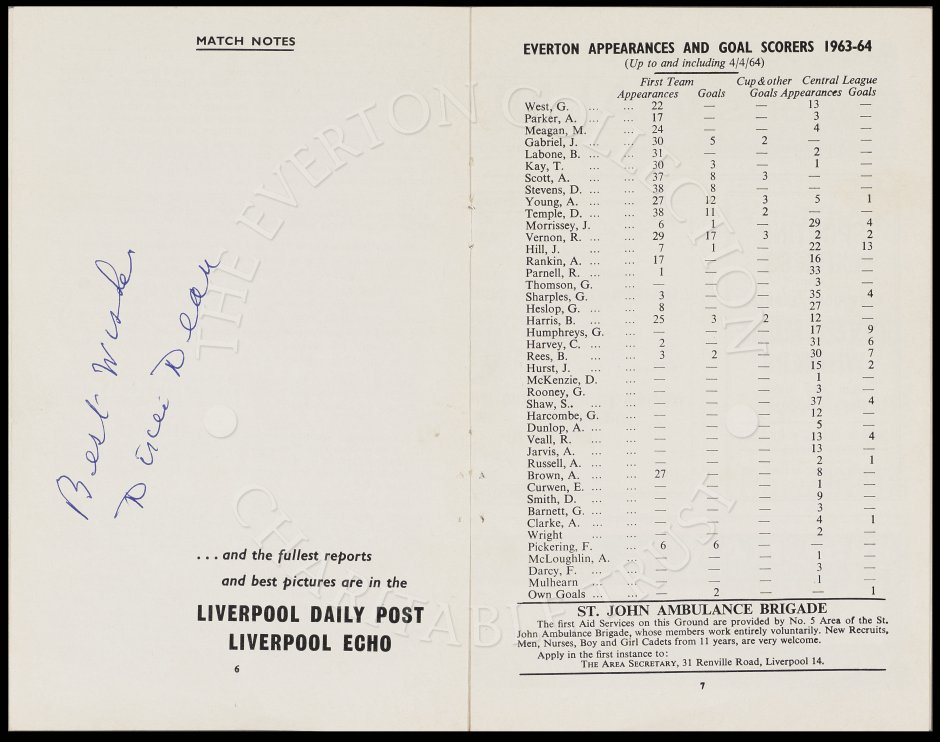 MATCH NOTES
Best Wishes
Dixie Dean
... and the fullest reports
and best pictures are in the
LIVERPOOL DAILY POST
LIVERPOOL ECHO
6
EVERTON APPEARANCES AND GOAL SCORERS 1963-64
(Up to and including 4/4/64)
First Team Cup & other Central League
Appearances Goals Goals Appearances Goals
West, G. ... ... 22 — — 13 —
Parker, A. ... ... 17 — — 3 —
Meagan, M. ... 24 — — 4 —
Gabriel, J. ... ... 30 5 2 — —
Labone, B. ... ... 31 — — 2 —
Kay, T. ... ... 30 3 — 1 —
Scott, A. ... ... 37 8 3 — —
Stevens, D. ... ... 38 8 — — —
Young, A. ... ... 27 12 3 5 1
Temple, D. ... ... 38 11 2 — —
Morrissey, J. ... 6 1 — 29 4
Vernon, R. ... ... 29 17 3 2 2
Hill, J. ... ... 7 1 — 22 13
Rankin, A. ... ... 17 — — 16 —
Parnell, R. ... ... 1 — — 33 —
Thomson, G. ... — — — 3 —
Sharples, G. ... 3 — — 35 4
Heslop, G. ... ... 8 — — 27 —
Harris, B. ... ... 25 3 2 12 —
Humphreys, G. ... — — — 17 9
Harvey, C. ... ... 2 — — 31 6
Rees, B. ... ... 3 2 — 30 7
Hurst, J. ... ... — — — 15 2
McKenzie, D. ... — — — 1 —
Rooney, G. ... — — — 3 —
Shaw, S.. ... ... — — — 37 4
Harcombe, G. ... — — — 12 —
Dunlop, A. ... ... — — — 5 —
Veall, R. ... ... — — — 13 4
Jarvis, A. ... ... — — — 13 —
Russell, A. ... ... — — — 2 1
Brown, A. ... ... 27 — — 8 —
Curwen, E. ... ... — — — 1 —
Smith, D. ... ... — — — 9 —
Barnett, G. ... ... — — — 3 —
Clarke, A. ... ... — — — 4 1
Wright ... ... — — — 2 —
Pickering, F. ... 6 6 — — —
McLoughlin, A. ... — — — 1 —
Darcy, F. ... ... — — — 3 —
Mulhearn ... ... — — — 1 —
Own Goals ... ... — 2 — — 1
ST. JOHN AMBULANCE BRIGADE
The first Aid Services on this Ground are provided by No. 5 Area of the St.
John Ambulance Brigade, whose members work entirely voluntarily. New Recruits,
Men, Nurses, Boy and Girl Cadets from 11 years, are very welcome.
Apply in the first instance to:
THE AREA SECRETARY, 31 Renville Road, Liverpool 14.
7
THE EVERTON COLLECTION
CHARITABLE TRUST